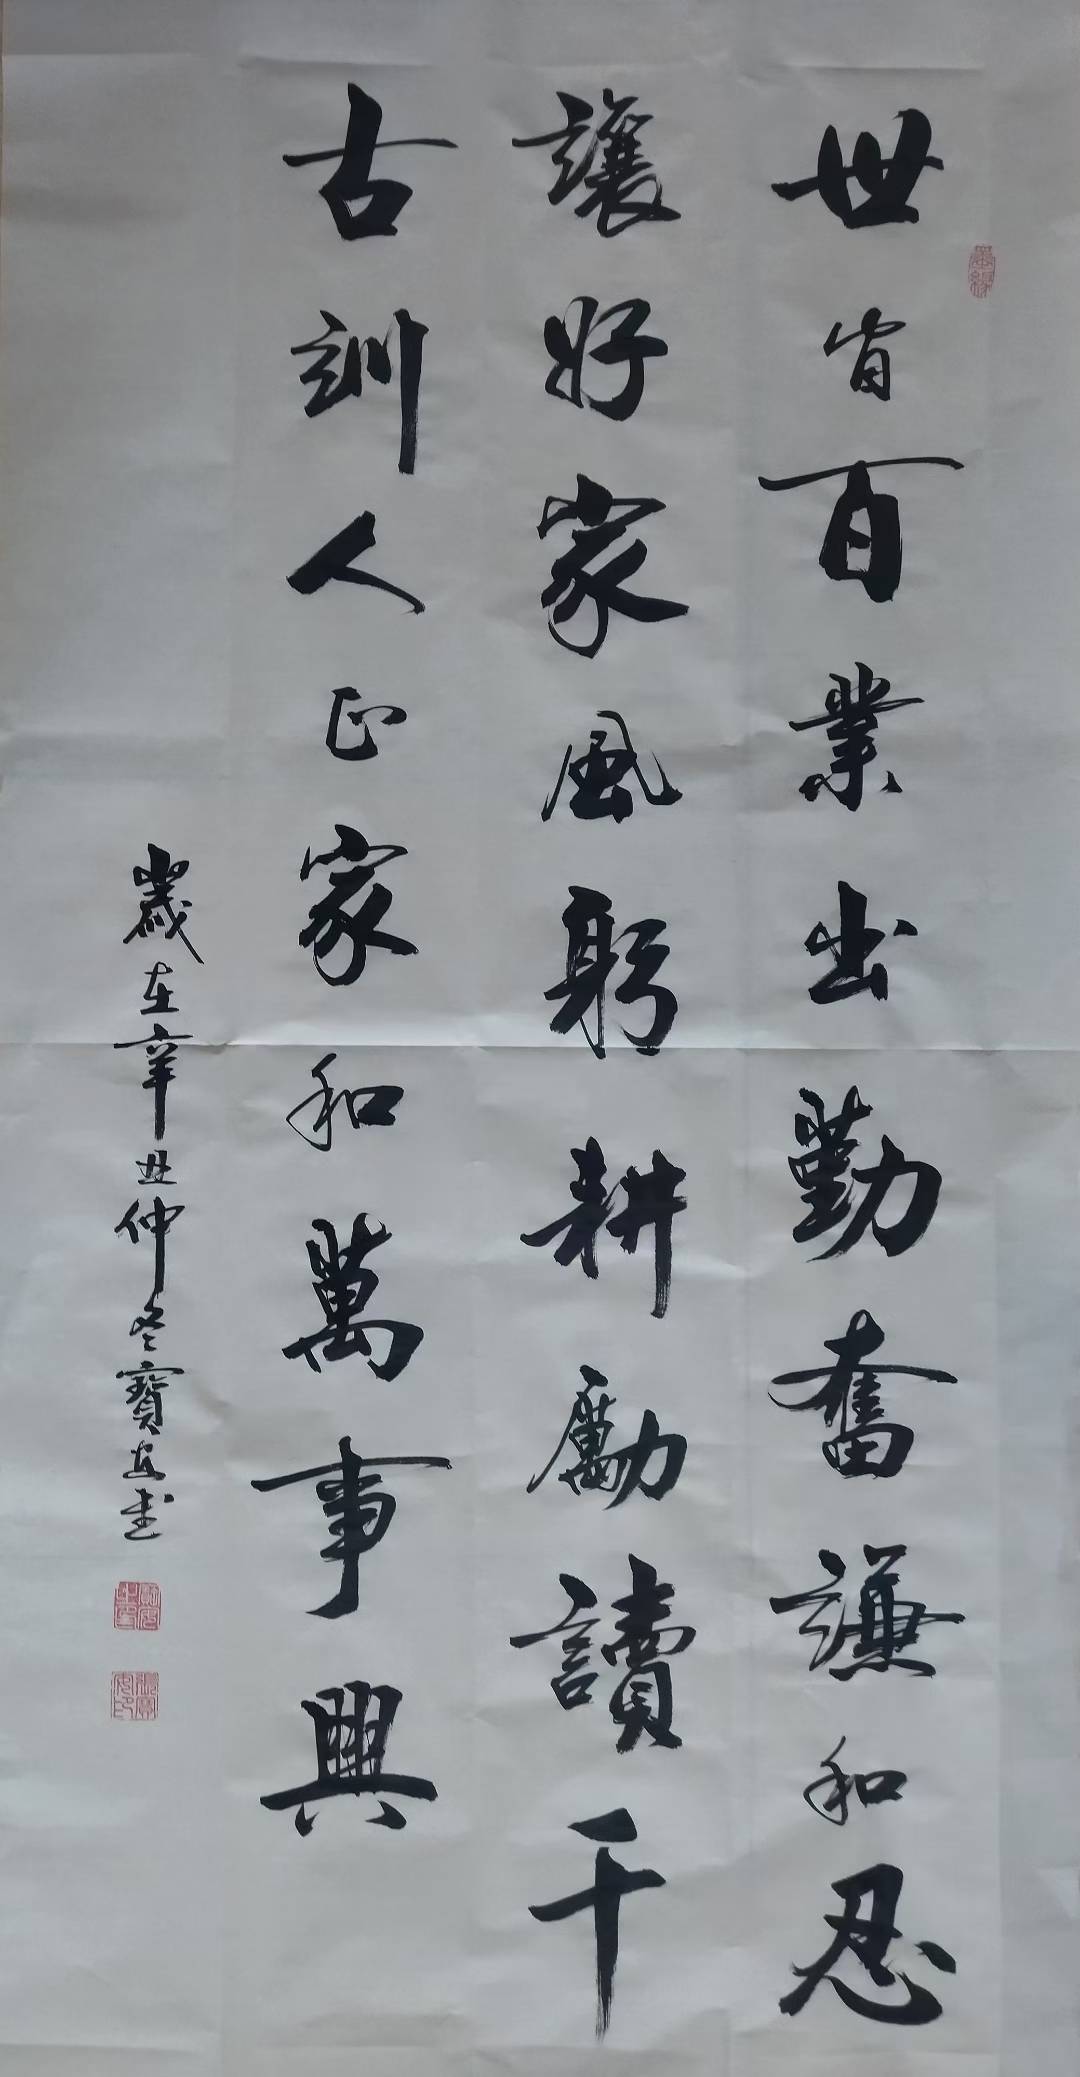 世間百業出勤奮謙和忍
讓好家風躬耕勵讀千
古訓人正家和萬事興
歲在辛丑仲冬寶安書
墨緣